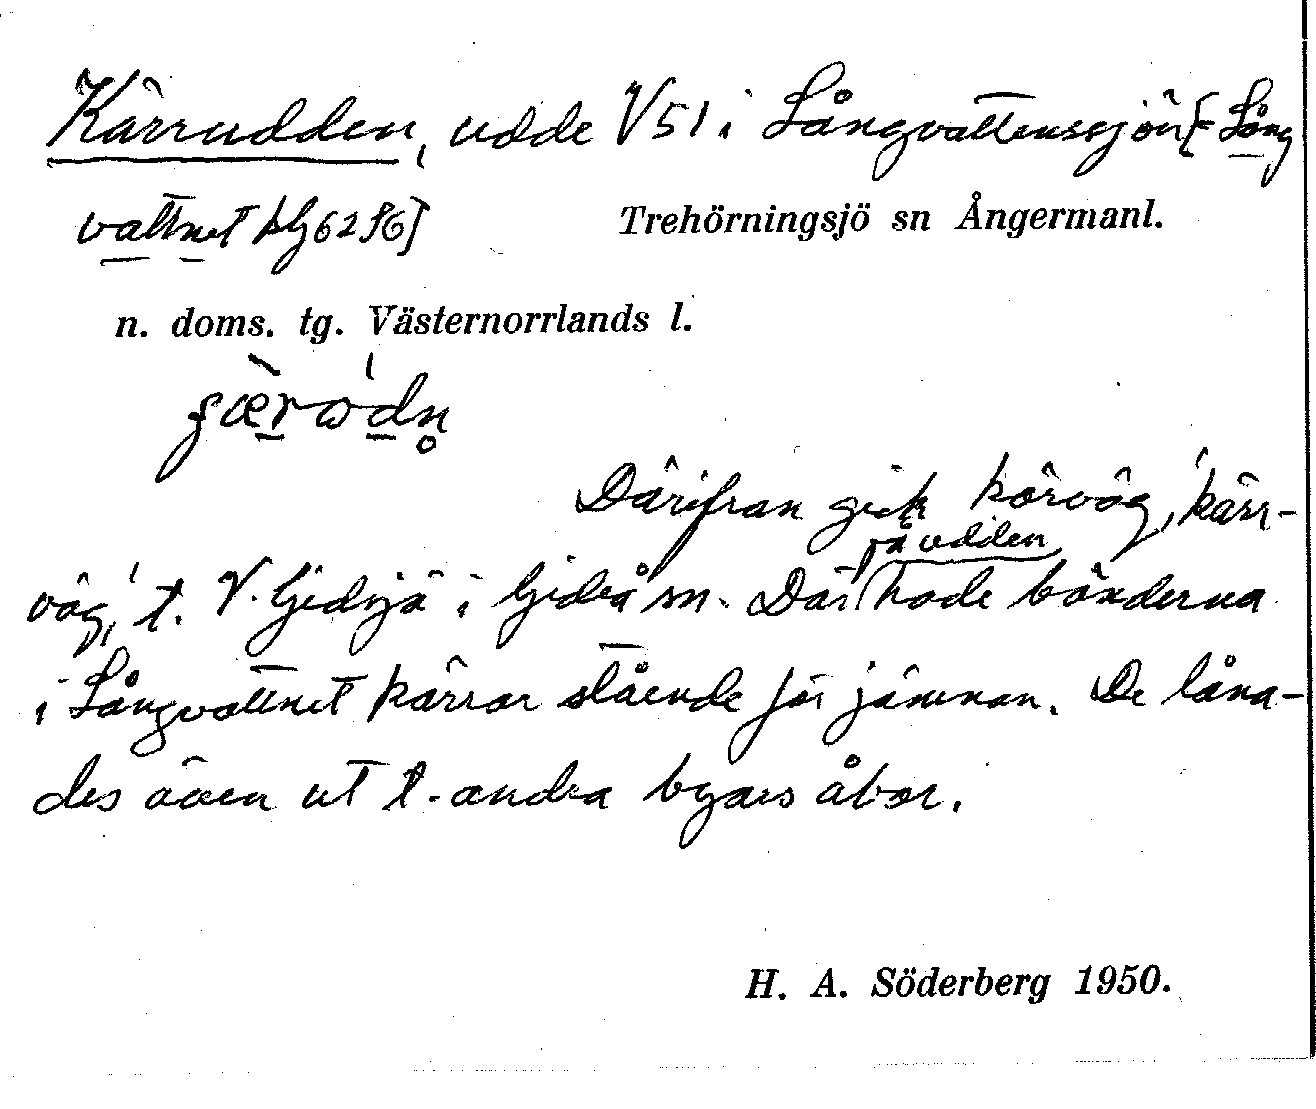 Kärrudden, udde V51 i Långvattenssjön [= Lång
vattnet
Trehörningsjö sn Ångermanl.
n. doms. tg. Västernorrlands l.
Därifrån gick körväg, 'kärr-
väg,' t. V. Gidsjö i Gideå sn. Där på udden hade bönderna
i Långvattnet kärror stående för jämnan. De låna-
des även ut t. andra byars åbor.
H. A. Söderberg 1950.